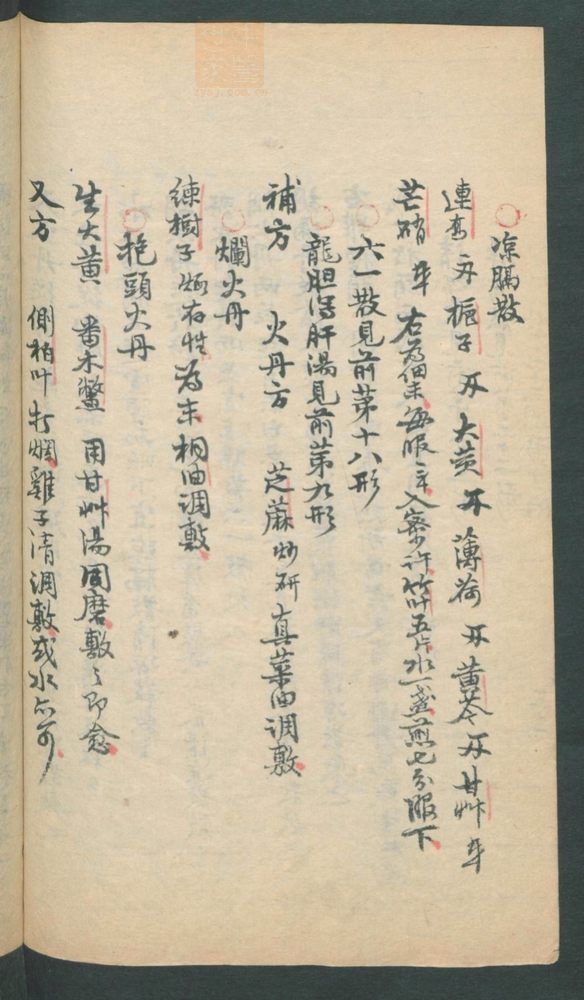 凉膈散
連翹 栀子 大黄 薄荷 黄芩 甘艸
芒硝 右為細末每服 入蜜許竹叶五片水一盞煎七分服下
六一散見前第十八形
龍胆瀉肝湯見前第九形
補方 火丹方 芝蔴炒研真菜油调敷
爛火丹
練樹子煅存性為末桐油调敷
抱頭火丹
生大黄 番木鱉 用甘艸湯同磨敷之即愈
又方 側柏叶打烟雞子清调敷或水亦可